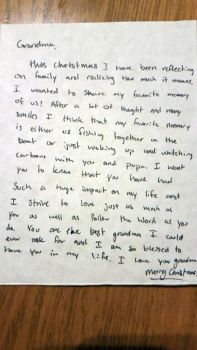 Grandma,
this christmas I have been reflecting
on family and realizing how much it means.
I wanted to share my favorite memory
of us! After a lot of thought and many
smiles I think that my favorite memory
is either us fishing together on the
boat or just waking up and watching
cartoons with you and pupa. I want
you to know that you have had
Such a huge impact on my life and
I strive to love just as much as
you as well as follow the Word as you
do. You are the best grandma I could
ever ask for and I am so blessed to
have you in my life. I love you grandma
Merry Christmas